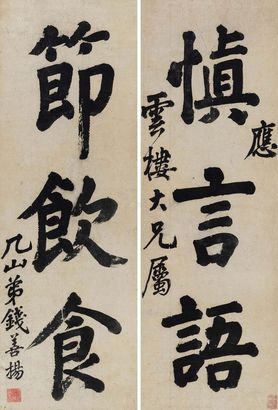 慎言語
應
雲樓大兄屬
節飲食
凡山弟錢善揚